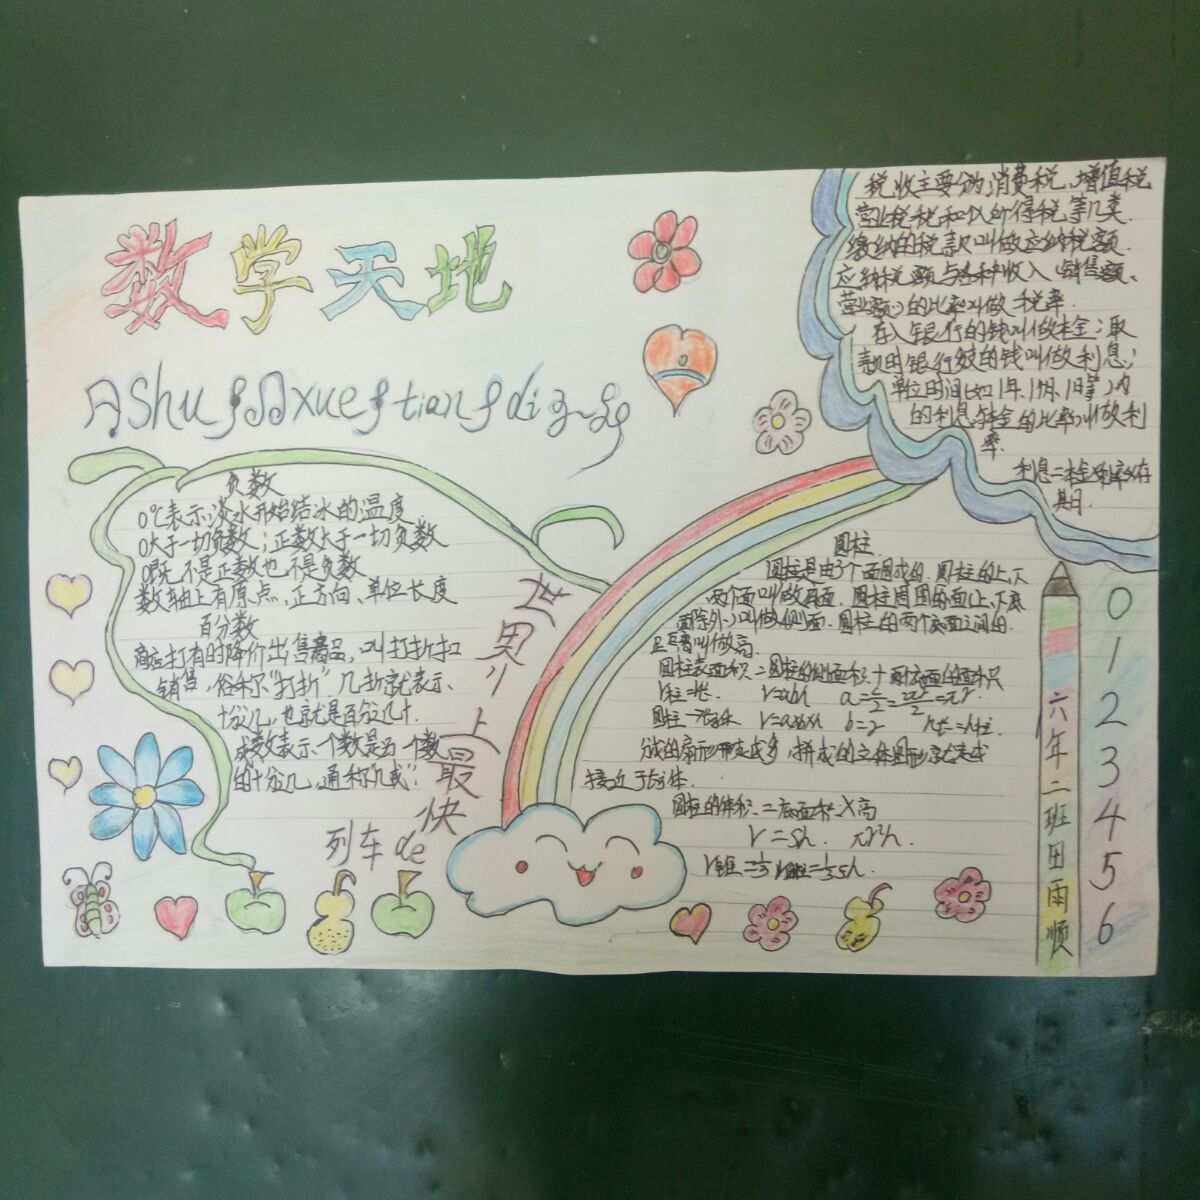 数学天地
shu xue tian di
负数
0℃表示淡水开始结冰的温度
0大于一切负数；正数大于一切负数
0既不是正数也不是负数
数轴上有原点，正方向、单位长度
百分数
商店打有时降价出售商品，叫打折扣
销售，俗称"打折"几折就表示、
十分几，也就是百分几十.
成数表示一个数是另一个数
的十分几，通称"几成".
世界上最快
列车de
税收主要分为消费税、增值税
营业税税和个人所得税等几类.
缴纳的税款叫做应纳税额.
应纳税额与各种收入（销售额、
营业额）的比率叫做税率.
存入银行的钱叫做本金；取
款时银行给的钱叫做利息；
单位时间(如1年、1月、1日等)内
的利息与本金的比率叫做利
率.
利息=本金×利率×存
其日.
圆柱.
圆柱是由3个面围成的.圆柱的上、下
两个面叫做底面.圆柱周围的面(上、下底
面除外)叫做侧面.圆柱的两个底面之间的
距离叫做高.
圆柱表面积=圆柱的侧面积+两个底面的面积
V=abh
b=r
分成的扇形越多，拼成的立体图形就越
接近于长方体.
圆柱的体积=底面积×高
V=Sh. πr²h.
V锥=⅓V柱=⅓Sh.
六年二班田雨顺
0
1
2
3
4
5
6